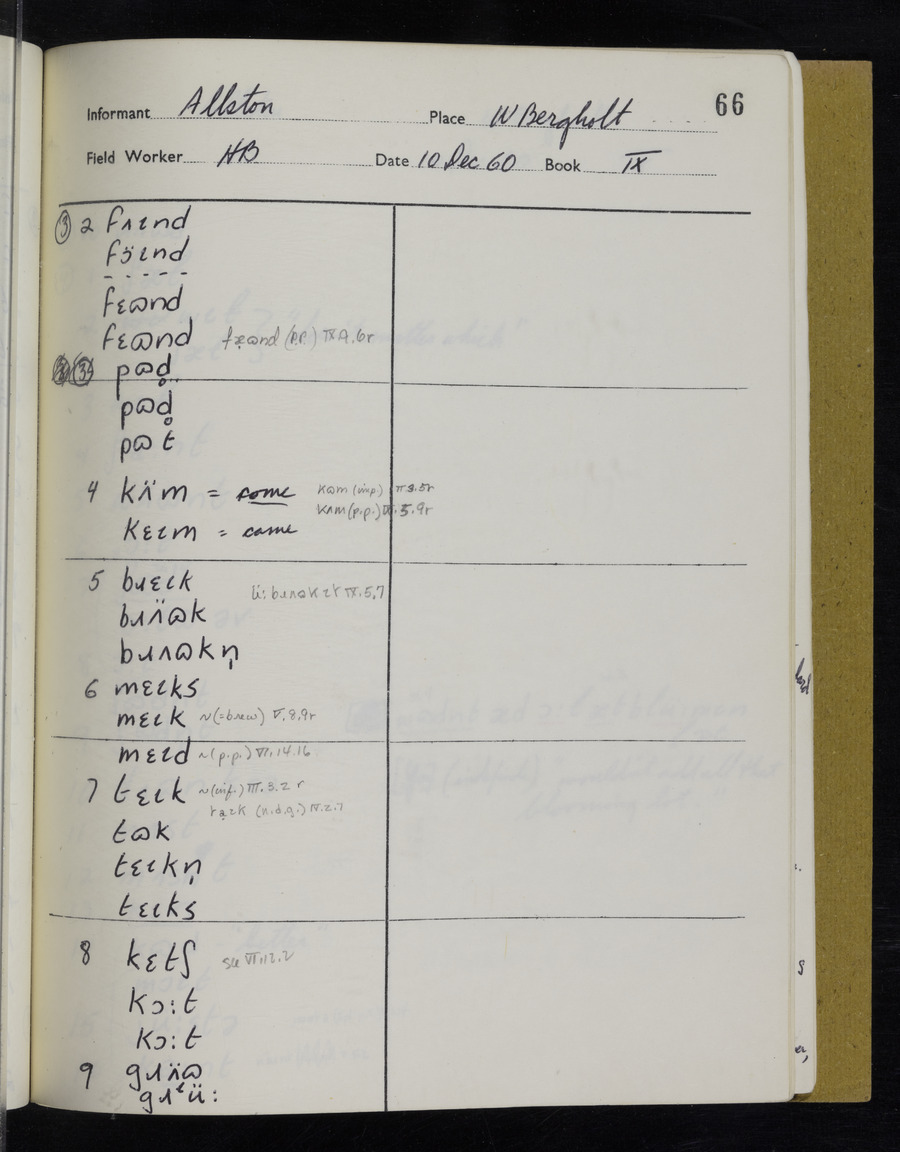 66
Informant Allston Place W Bergholt
Field Worker HB Date 10 Dec 60 Book IX
③ 2 fʌɪnd
fɔ̈ɪnd
- - - - -
fɛɷnd
fɛɷnd fæɷnd (p.p.) IX A. 6r
③ pɷd̥
pɷd̥
pɷt
4 kʌ̈m = come kɷm (imp.)
kʌm (p.p.) 5.9r
kɛɪm = came
5 bɹɛɪk
ü: bɹʌɷk IX.5.7
bɹʌ̈ɷk
bɹʌɷkn̩
6 mɛɪks
mɛɪk ~(=brew) V.8.9r
mɛɪd ~(p.p.) VI.14.16
7 tɛɪk ~(inf.) III.3.2 r
(n.d.g.) IV.2.7
tɷk
tɛɪkn̩
tɛɪks
8 kɛtʃ see VI.12.2
kɔ:t
kɔ:t
9 gɹʌ̈ɷ
gɹᵗü: